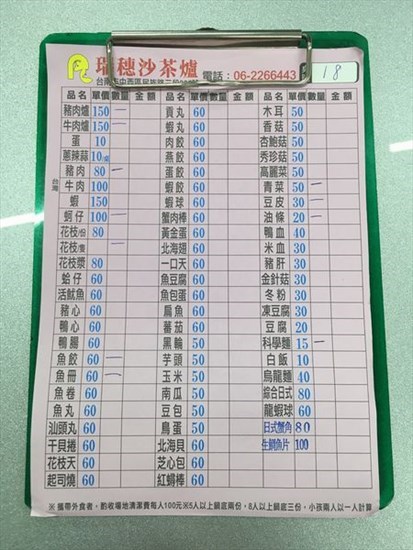 瑞穗沙茶爐
電話：06-2266443
18
品名 單價 數量 金額 品名 單價 數量 金額 品名 單價 數量 金額
豬肉爐 150 一 貢丸 60 木耳 50
牛肉爐 150 一 蝦丸 60 香菇 50
蛋 10 肉餃 60 杏鮑菇 50
蔥辣蒜 10 燕餃 60 秀珍菇 50
豬肉 80 一 蛋餃 60 高麗菜 50
台灣 牛肉 100 蝦餃 60 青菜 50 一
蝦 150 蝦球 60 豆皮 30 一
蚵仔 100 一 蟹肉棒 60 油條 20 一
花枝/份 80 黃金蛋 60 鴨血 40
花枝/隻 北海翅 60 米血 30
花枝漿 80 一口天 60 豬肝 40
蛤仔 60 魚豆腐 60 金針菇 30
活魷魚 60 魚包蛋 60 冬粉 30
豬心 60 扁魚 60 凍豆腐 30
鴨心 60 蕃茄 60 豆腐 20
鴨腸 60 黑輪 50 科學麵 15 一
魚餃 60 一 芋頭 50 白飯 10
魚冊 60 一 玉米 50 烏龍麵 40
魚卷 60 南瓜 50 綜合日式 80
魚丸 60 豆包 50 龍蝦球 60
汕頭丸 60 鳥蛋 50 日式蟹角 80
干貝捲 60 北海貝 60 生鮮魚片 100
花枝天 60 芝心包 60
起司燒 60 紅蟳棒 60
※攜帶外食者，酌收場地清潔費每人100元※5人以上鍋底兩份，8人以上鍋底三份，小孩兩人以一人計算